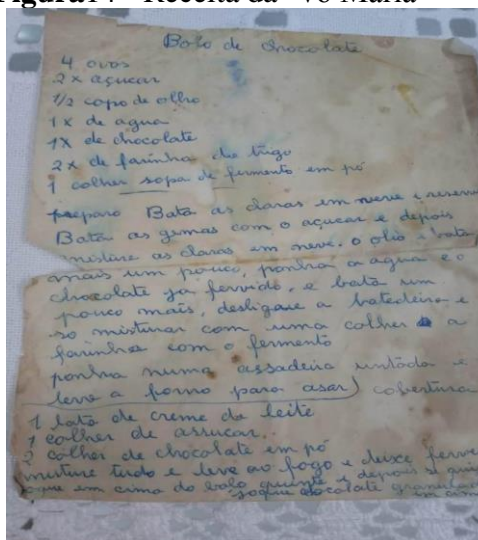 Figura14 - Receita da "Vó Maria"
Bolo de chocolate
4 ovos
2 x açucar
1/2 copo de olho
1 x de agua
1 x de chocolate
2 x de farinha de trigo
1 colher sopa de fermento em pó
preparo Bata as claras em neve e reserv
Bata as gemas com o açucar e depois
misture as claras em neve. o olio e bata
mais um pouco, ponha a agua e o
chocolate ja fervido, e bata um
pouco mais, desligue a batedeira e
so misturar com uma colher a
farinha com o fermento
ponha numa assadeira untada e
leve a forno para asar) cobertura
1 lata de creme de leite
1 colher de assucar..
2 colher de chocolate em pó
misture tudo e leve ao fogo e deixe ferve
em cima do bolo quente e depois si quis
soque chocolate granulado
em cim